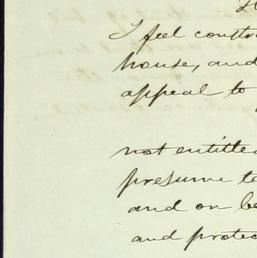 I feel constr
house, and
appeal to
not entitled
presume to
and on be
and protec